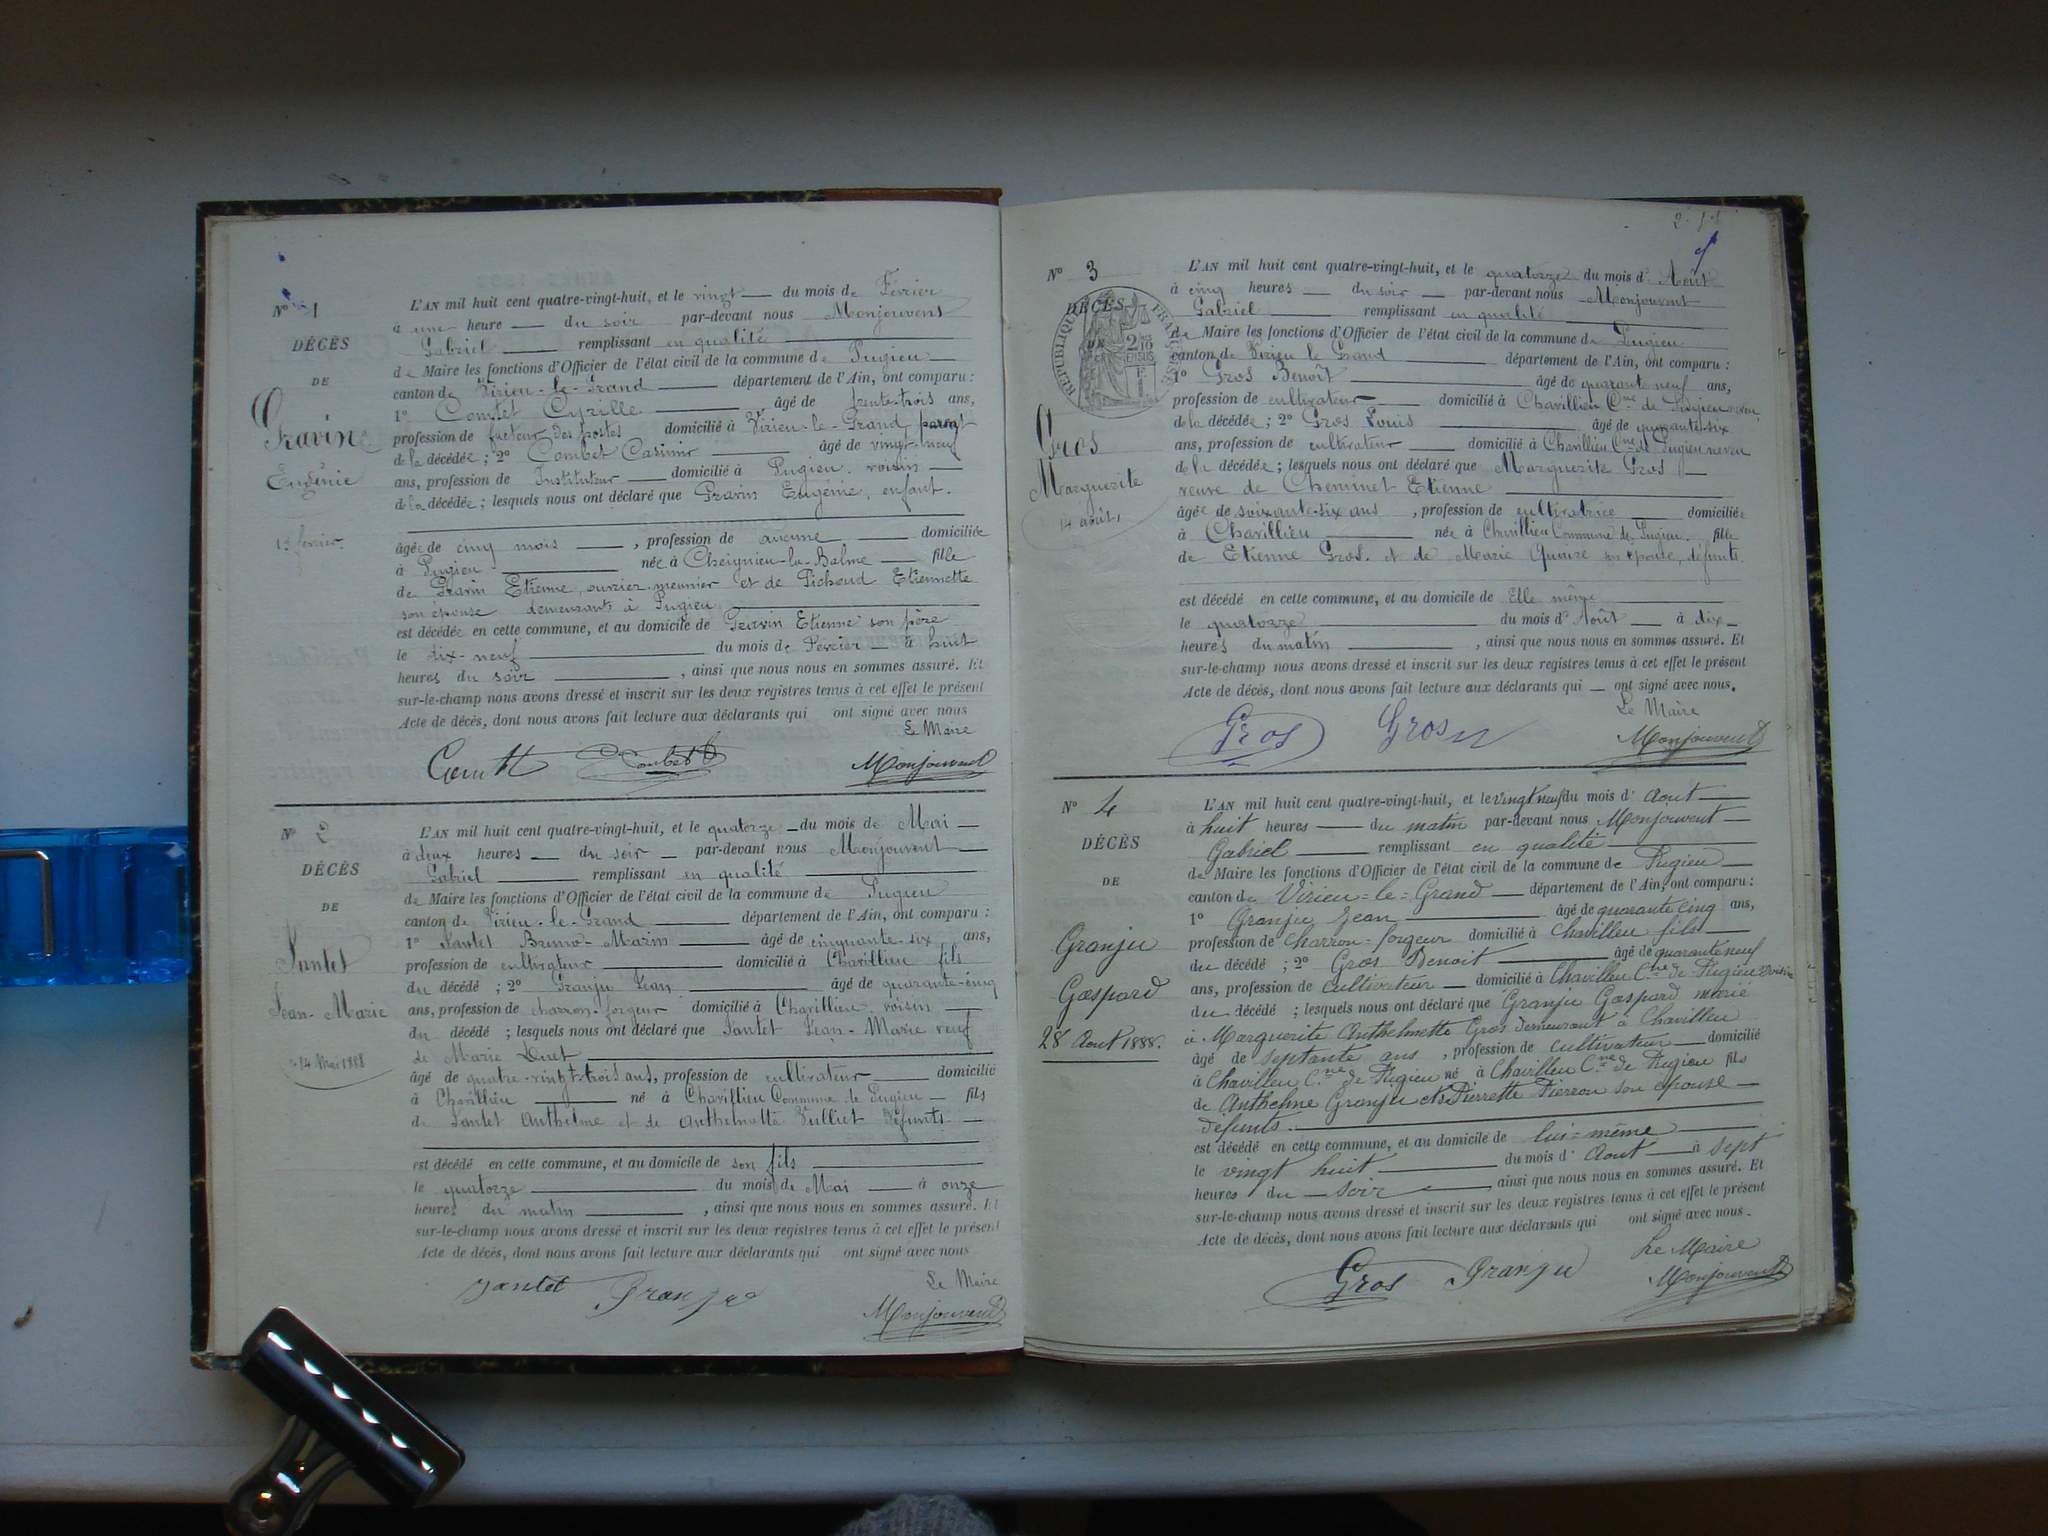 N° 1
DÉCÈS
DE
Gravin
Eugénie
L'AN mil huit cent quatre-vingt-huit, et le vingt du mois de Février
à une heure du soir par-devant nous Monjouvent
Gabriel remplissant en qualité
de Maire les fonctions d'Officier de l'état civil de la commune de Pugieu
canton de Virieu-le-Grand département de l'Ain, ont comparu :
1° Comtet Cyrille âgé de trente-trois ans,
profession de facteur des postes domicilié à Virieu-le-Grand parent
de la décédée ; 2° Combet Casimir âgé de vingt-neuf
ans, profession de Instituteur domicilié à Pugieu voisin
de la décédée ; lesquels nous ont déclaré que Gravin Eugénie, enfant.
âgée de cinq mois , profession de aucune domiciliée
à Pugieu née à Cheignieu-la-Balme fille
de Gravin Etienne, ouvrier meunier et de Pichoud Etiennette
son épouse demeurants à Pugieu
est décédée en cette commune, et au domicile de Gravin Etienne son père
le dix-neuf du mois de Février à huit
heures du soir , ainsi que nous nous en sommes assuré. Et
sur-le-champ nous avons dressé et inscrit sur les deux registres tenus à cet effet le présent
Acte de décès, dont nous avons fait lecture aux déclarants qui ont signé avec nous
Le Maire
Combet Monjouvent
N° 2
DÉCÈS
DE
Jantet
Jean-Marie
14 Mai 1888
L'AN mil huit cent quatre-vingt-huit, et le quatorze du mois de Mai
à deux heures du soir par-devant nous Monjouvent
Gabriel remplissant en qualité
de Maire les fonctions d'Officier de l'état civil de la commune de Pugieu
canton de Virieu-le-Grand département de l'Ain, ont comparu :
1° Jantet Bruno-Marin âgé de cinquante-six ans,
profession de cultivateur domicilié à Chavillieu fils
du décédé ; 2° Granju Jean âgé de quarante-cinq
ans, profession de charron-forgeur domicilié à Chavillieu voisin
du décédé ; lesquels nous ont déclaré que Jantet Jean-Marie veuf
de Marie
âgé de quatre-vingt-trois ans, profession de cultivateur domicilié
à Chavillieu né à Chavillieu Commune de Pugieu fils
de Jantet Anthelme et de Anthelmette Vulliet défunts
est décédé en cette commune, et au domicile de son fils
le quatorze du mois de Mai à onze
heures du matin , ainsi que nous nous en sommes assuré. Et
sur-le-champ nous avons dressé et inscrit sur les deux registres tenus à cet effet le présent
Acte de décès, dont nous avons fait lecture aux déclarants qui ont signé avec nous
Le Maire
Jantet Granju Monjouvent
N° 3
DÉCÈS
RÉPUBLIQUE FRANÇAISE
Gros
Marguerite
14 août
L'AN mil huit cent quatre-vingt-huit, et le quatorze du mois d'Août
à cinq heures du soir par-devant nous Monjouvent
Gabriel remplissant en qualité
de Maire les fonctions d'Officier de l'état civil de la commune de Pugieu
canton de Virieu le Grand département de l'Ain, ont comparu :
1° Gros Benoît âgé de quarante neuf ans,
profession de cultivateur domicilié à Chavillieu Cne de Pugieu
de la décédée ; 2° Gros Louis âgé de quarante-six
ans, profession de cultivateur domicilié à Chavillieu Cne de Pugieu neveu
de la décédée ; lesquels nous ont déclaré que Marguerite Gros
veuve de Cheminet Etienne
âgée de soixante-six ans , profession de cultivatrice domiciliée
à Chavillieu née à Chavillieu Commune de Pugieu. fille
de Etienne Gros. et de Marie son épouse, défunts
est décédé en cette commune, et au domicile de Elle même
le quatorze du mois d'Août à dix
heures du matin , ainsi que nous nous en sommes assuré. Et
sur-le-champ nous avons dressé et inscrit sur les deux registres tenus à cet effet le présent
Acte de décès, dont nous avons fait lecture aux déclarants qui ont signé avec nous.
Le Maire
Gros Gros Monjouvent
N° 4
DÉCÈS
DE
Granju
Gaspard
28 Aout 1888.
L'AN mil huit cent quatre-vingt-huit, et le vingt neuf du mois d'Aout
à huit heures du matin par-devant nous Monjouvent
Gabriel remplissant en qualité
de Maire les fonctions d'Officier de l'état civil de la commune de Pugieu
canton de Virieu=le=Grand département de l'Ain, ont comparu :
1° Granju Jean âgé de quarante cinq ans,
profession de charron=forgeur domicilié à Chavilleu fils
du décédé ; 2° Gros Benoit âgé de quarante neuf
ans, profession de cultivateur domicilié à Chavilleu Cne de Pugieu voisin
du décédé ; lesquels nous ont déclaré que Granju Gaspard marié
à Marguerite Anthelmette Gros demeurant à Chavilleu
âgé de septante ans , profession de cultivateur domicilié
à Chavilleu Cne de Pugieu né à Chavilleu Cne de Pugieu fils
de Anthelme Granju et Pierrette Pierron son epouse
défunts.
est décédé en cette commune, et au domicile de lui=même
le vingt huit du mois d'Aout à sept
heures du soir , ainsi que nous nous en sommes assuré. Et
sur-le-champ nous avons dressé et inscrit sur les deux registres tenus à cet effet le présent
Acte de décès, dont nous avons fait lecture aux déclarants qui ont signé avec nous.
Le Maire
Gros Granju Monjouvent